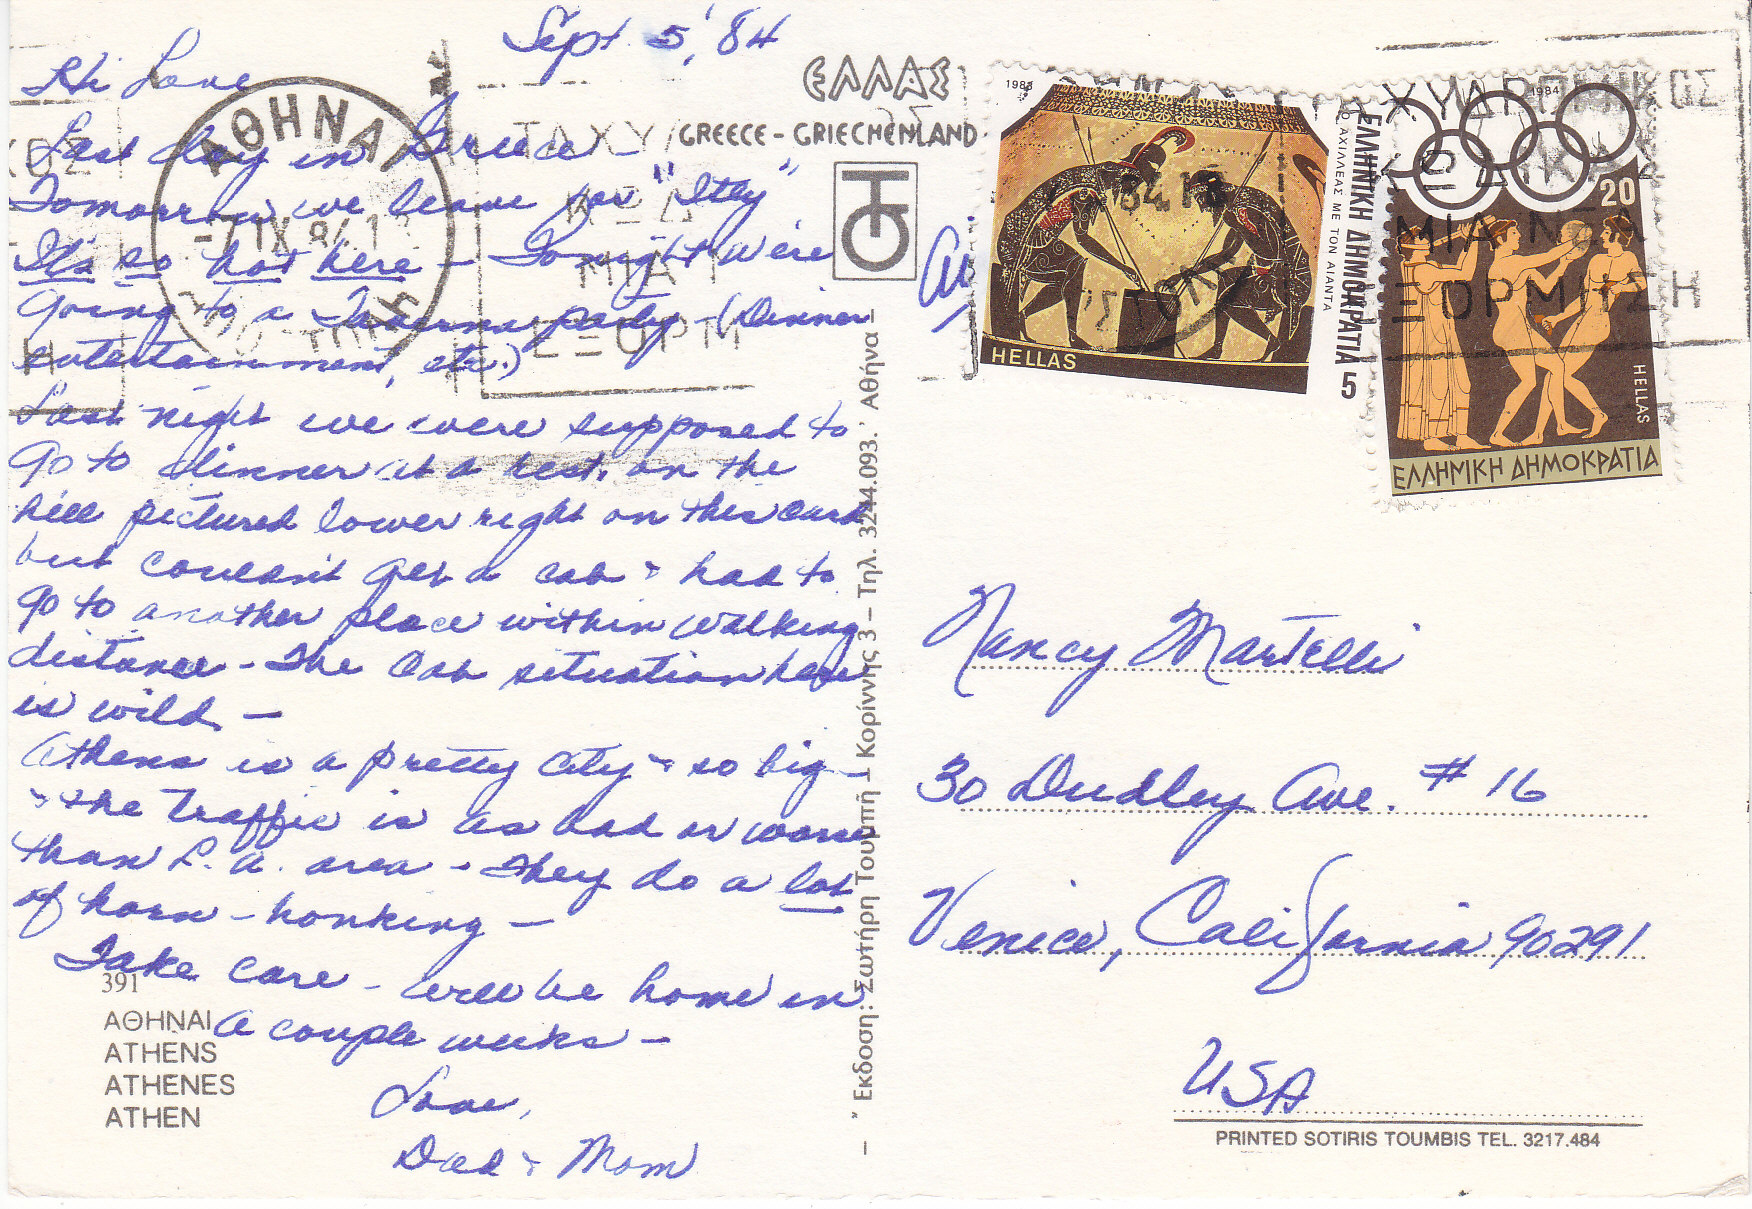 Sept 5, '84
Hi Love
Last day in Greece -
Tomorrow we leave for "Itly"
It's so hot here - Tonight we're
going to a Taverna party - (Dinner
entertainment, etc.)
Last night we were supposed to
go to dinner at a rest. on the
hill pictured lower right on this card
but couldn't get a cab & had to
go to another place within walking
distance - The cab situation here
is wild -
Athens is a pretty city & so big -
& the traffic is as bad or worse
than L.A. area - They do a lot
of horn-honking -
Take care - will be home in
a couple weeks -
Love,
Dad & Mom
391
ΑΘΗΝΑΙ
ATHENS
ATHÈNES
ATHEN
ΕΛΛΑΣ
GREECE - GRIECHENLAND
" Έκδοση: Σωτήρη Τουμπή - Κορίννης 3 - Τηλ. 3244.093. ' Αθήνα -
ΑΘΗΝΑΙ
-7.IX.84.1
ΤΑΧΥ
ΜΙΑ
ΕΞΟΡΜ
ΚΟΣ
Η
1983
Ο ΑΧΙΛΛΕΑΣ ΜΕ ΤΟΝ ΑΙΑΝΤΑ
ΕΛΛΗΝΙΚΗ ΔΗΜΟΚΡΑΤΙΑ 5
HELLAS
1984
20
HELLAS
ΕΛΛΗΝΙΚΗ ΔΗΜΟΚΡΑΤΙΑ
ΜΙΑ ΝΕΑ
ΕΞΟΡΜΗΣΗ
Nancy Martelli
30 Dudley Ave. #16
Venice, California 90291
USA
PRINTED SOTIRIS TOUMBIS TEL. 3217.484